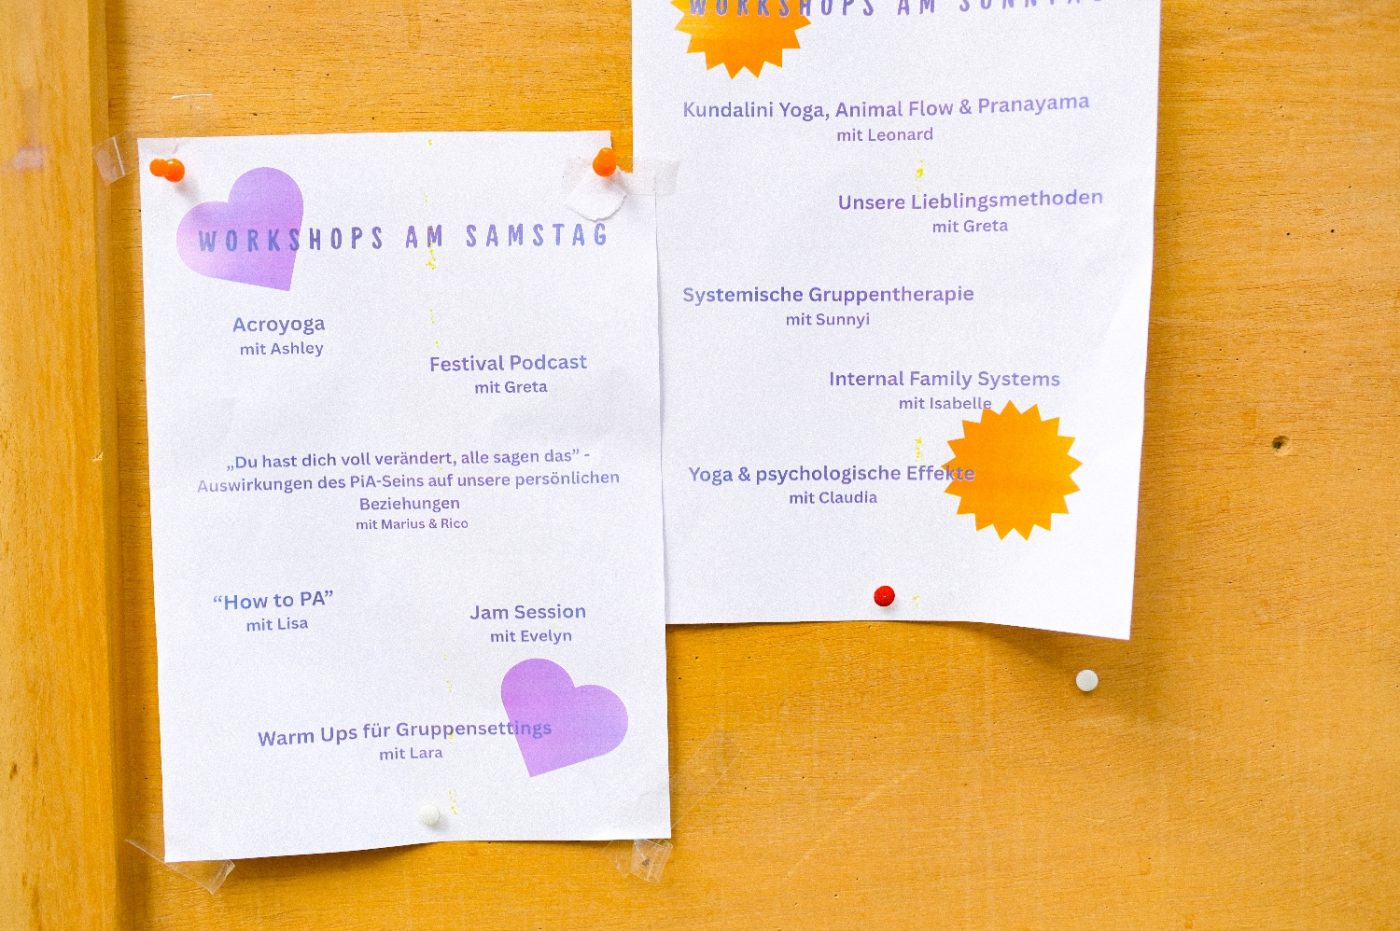 WORKSHOPS AM SAMSTAG
Acroyoga
mit Ashley
Festival Podcast
mit Greta
„Du hast dich voll verändert, alle sagen das” -
Auswirkungen des PiA-Seins auf unsere persönlichen
Beziehungen
mit Marius & Rico
“How to PA”
mit Lisa
Jam Session
mit Evelyn
Warm Ups für Gruppensettings
mit Lara
WORKSHOPS AM SONNTAG
Kundalini Yoga, Animal Flow & Pranayama
mit Leonard
Unsere Lieblingsmethoden
mit Greta
Systemische Gruppentherapie
mit Sunnyi
Internal Family Systems
mit Isabelle
Yoga & psychologische Effekte
mit Claudia